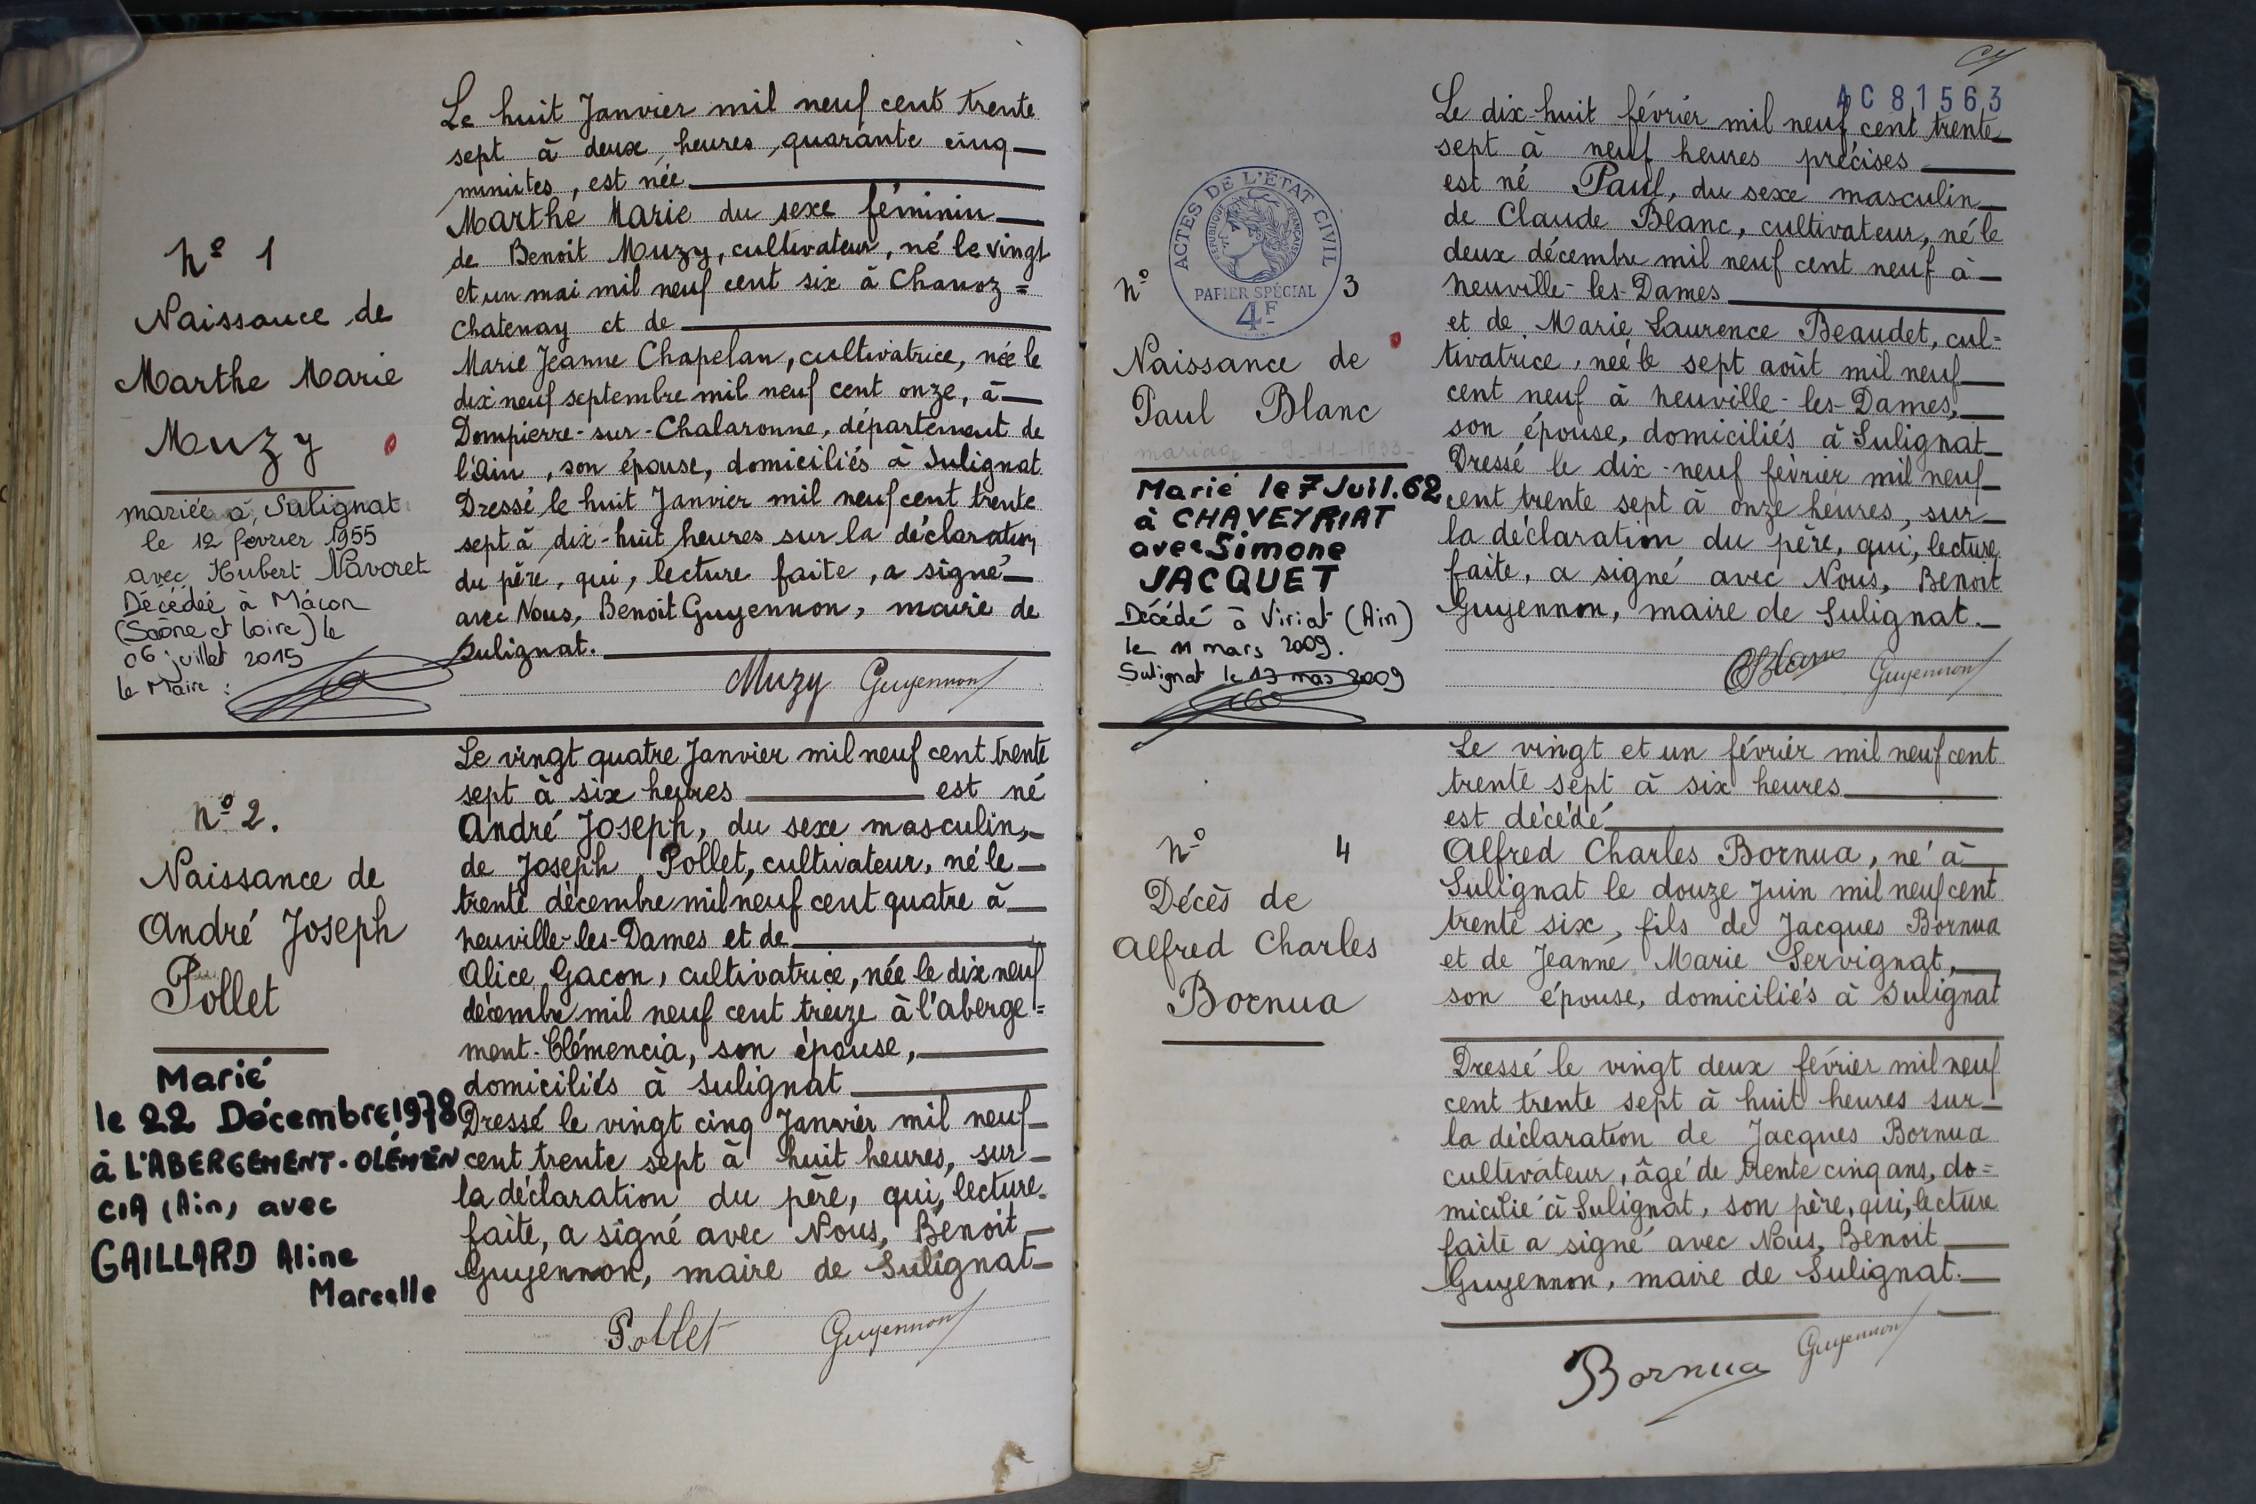 N° 1
Naissance de
Marthe Marie
Muzy
mariée à Sulignat
le 12 février 1955
avec Hubert Navoret
Décédée à Mâcon
(Saône et Loire) le
06 juillet 2015
le Maire :
Le huit Janvier mil neuf cent trente
sept à deux heures quarante cinq
minutes, est née
Marthe Marie du sexe féminin
de Benoit Muzy, cultivateur, né le vingt
et un mai mil neuf cent six à Chanoz=
Chatenay et de
Marie Jeanne Chapelan, cultivatrice, née le
dix neuf septembre mil neuf cent onze, à
Dompierre-sur-Chalaronne, département de
l'Ain, son épouse, domiciliés à Sulignat
Dressé le huit Janvier mil neuf cent trente
sept à dix-huit heures sur la déclaration
du père, qui, lecture faite, a signé
avec Nous, Benoit Guyennon, maire de
Sulignat.
Muzy Guyennon
N° 2.
Naissance de
André Joseph
Pollet
Marié
le 22 Décembre 1978
à L'ABERGEMENT-CLÉMEN
CIA (Ain) avec
GAILLARD Aline
Marcelle
Le vingt quatre Janvier mil neuf cent trente
sept à six heures est né
André Joseph, du sexe masculin,
de Joseph Pollet, cultivateur, né le
trente décembre mil neuf cent quatre à
Neuville-les-Dames et de
Alice Gacon, cultivatrice, née le dix neuf
décembre mil neuf cent treize à l'aberge=
ment-Clémencia, son épouse,
domiciliés à Sulignat
Dressé le vingt cinq Janvier mil neuf
cent trente sept à huit heures, sur
la déclaration du père, qui, lecture
faite, a signé avec Nous, Benoit
Guyennon, maire de Sulignat
Pollet Guyennon
4C 81563
ACTES DE L'ÉTAT CIVIL
RÉPUBLIQUE FRANÇAISE
PAPIER SPÉCIAL
4F
N° 3
Naissance de
Paul Blanc
mariage - 9-11-1993-
Marié le 7 Juil. 62
à CHAVEYRIAT
avec Simone
JACQUET
Décédé à Viriat (Ain)
le 11 mars 2009.
Sulignat le 13 mars 2009
Le dix-huit février mil neuf cent trente
sept à neuf heures précises
est né Paul, du sexe masculin
de Claude Blanc, cultivateur, né le
deux décembre mil neuf cent neuf à
Neuville-les-Dames
et de Marie Laurence Beaudet, cul=
tivatrice, née le sept août mil neuf
cent neuf à Neuville-les-Dames,
son épouse, domiciliés à Sulignat
Dressé le dix-neuf février mil neuf
cent trente sept à onze heures, sur
la déclaration du père, qui, lecture
faite, a signé avec Nous, Benoit
Guyennon, maire de Sulignat.
CBlanc Guyennon
N° 4
Décès de
Alfred Charles
Bornua
Le vingt et un février mil neuf cent
trente sept à six heures
est décédé
Alfred Charles Bornua, né à
Sulignat le douze Juin mil neuf cent
trente six, fils de Jacques Bornua
et de Jeanne Marie Servignat,
son épouse, domiciliés à Sulignat
Dressé le vingt deux février mil neuf
cent trente sept à huit heures sur
la déclaration de Jacques Bornua
cultivateur, âgé de trente cinq ans, do=
micilié à Sulignat, son père, qui, lecture
faite a signé avec Nous, Benoit
Guyennon, maire de Sulignat.
Bornua Guyennon